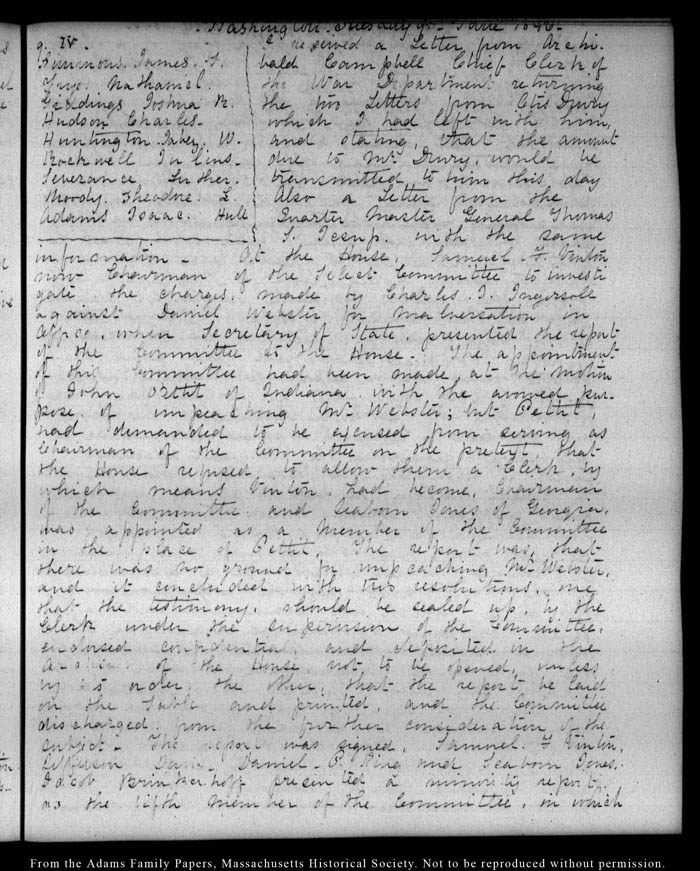 Washington. Tuesday 9th June 1846.
9. IV.
Simmons. James. F.
Nathaniel.
Giddings Joshua R.
Hudson Charles.
Huntington. Jabez. W.
Rockwell Julius.
Severance Luther.
Moody. Theodore. L.
Adams Isaac. Hull
I received a Letter from Archi-
bald Campbell Chief Clerk of
the War Department returning
the two Letters from Otis Drury
which I had left with him,
and stating, that the amount
due to Mr Drury, would be
transmitted to him this day
Also a Letter from the
Quarter Master General Thomas
S. Jesup. with the same
information. At the House, Samuel F. Vinton
now Chairman of the Select Committee to investi
gate the charges, made by Charles. J. Ingersoll
against Daniel Webster for malversation in
Office, when Secretary of State, presented the report
of the Committee to the House. The appointment
of this Committee had been made, at the motion
of John Pettit of Indiana with the avowed pur-
pose of impeaching Mr Webster; but Pettit,
had demanded to be excused from serving as
Chairman of the Committee on the pretext, that
the House refused, to allow them a Clerk, by
which means Vinton, had become, Chairman
of the Committee and Seaborn Jones of Georgia,
was appointed as a Member of the Committee
in the place of Pettit. The report was, that
there was no ground for impeaching Mr Webster,
and it concluded with two resolutions, one
that the testimony, should be sealed up, by the
Clerk under the supervision of the Committee,
endorsed confidential, and deposited in the
Archives of the House, not to be opened, unless
by its order, the other, that the report be laid
on the Table and printed, and the Committee
discharged, from the further consideration of the
subject. The report was signed, Samuel F Vinton,
Jefferson Davis, Daniel P. King and Seaborn Jones.
Jacob Brinkerhoff presented a minority report.
as the fifth member of the Committee, in which
From the Adams Family Papers, Massachusetts Historical Society. Not to be reproduced without permission.